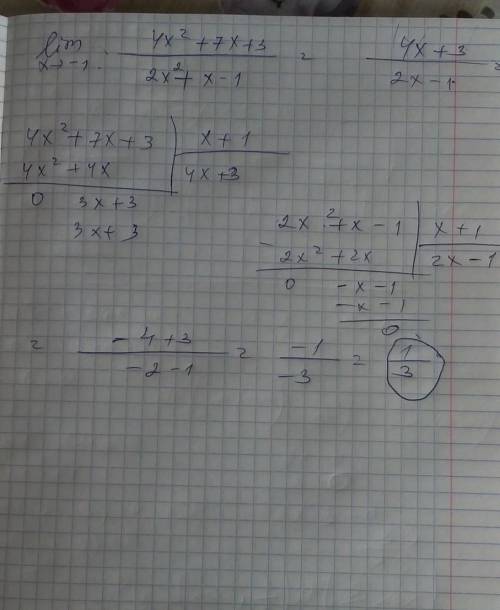 lim x→-1 (4x² + 7x + 3)/(2x² + x - 1) = (4x + 3)/(2x - 1) =
4x² + 7x + 3 | x + 1
4x² + 4x | 4x + 3
0 3x + 3
3x + 3
2x² + x - 1 | x + 1
- 2x² + 2x | 2x - 1
0 -x - 1
-x - 1
0
= (-4 + 3)/(-2 - 1) = (-1)/(-3) = 1/3